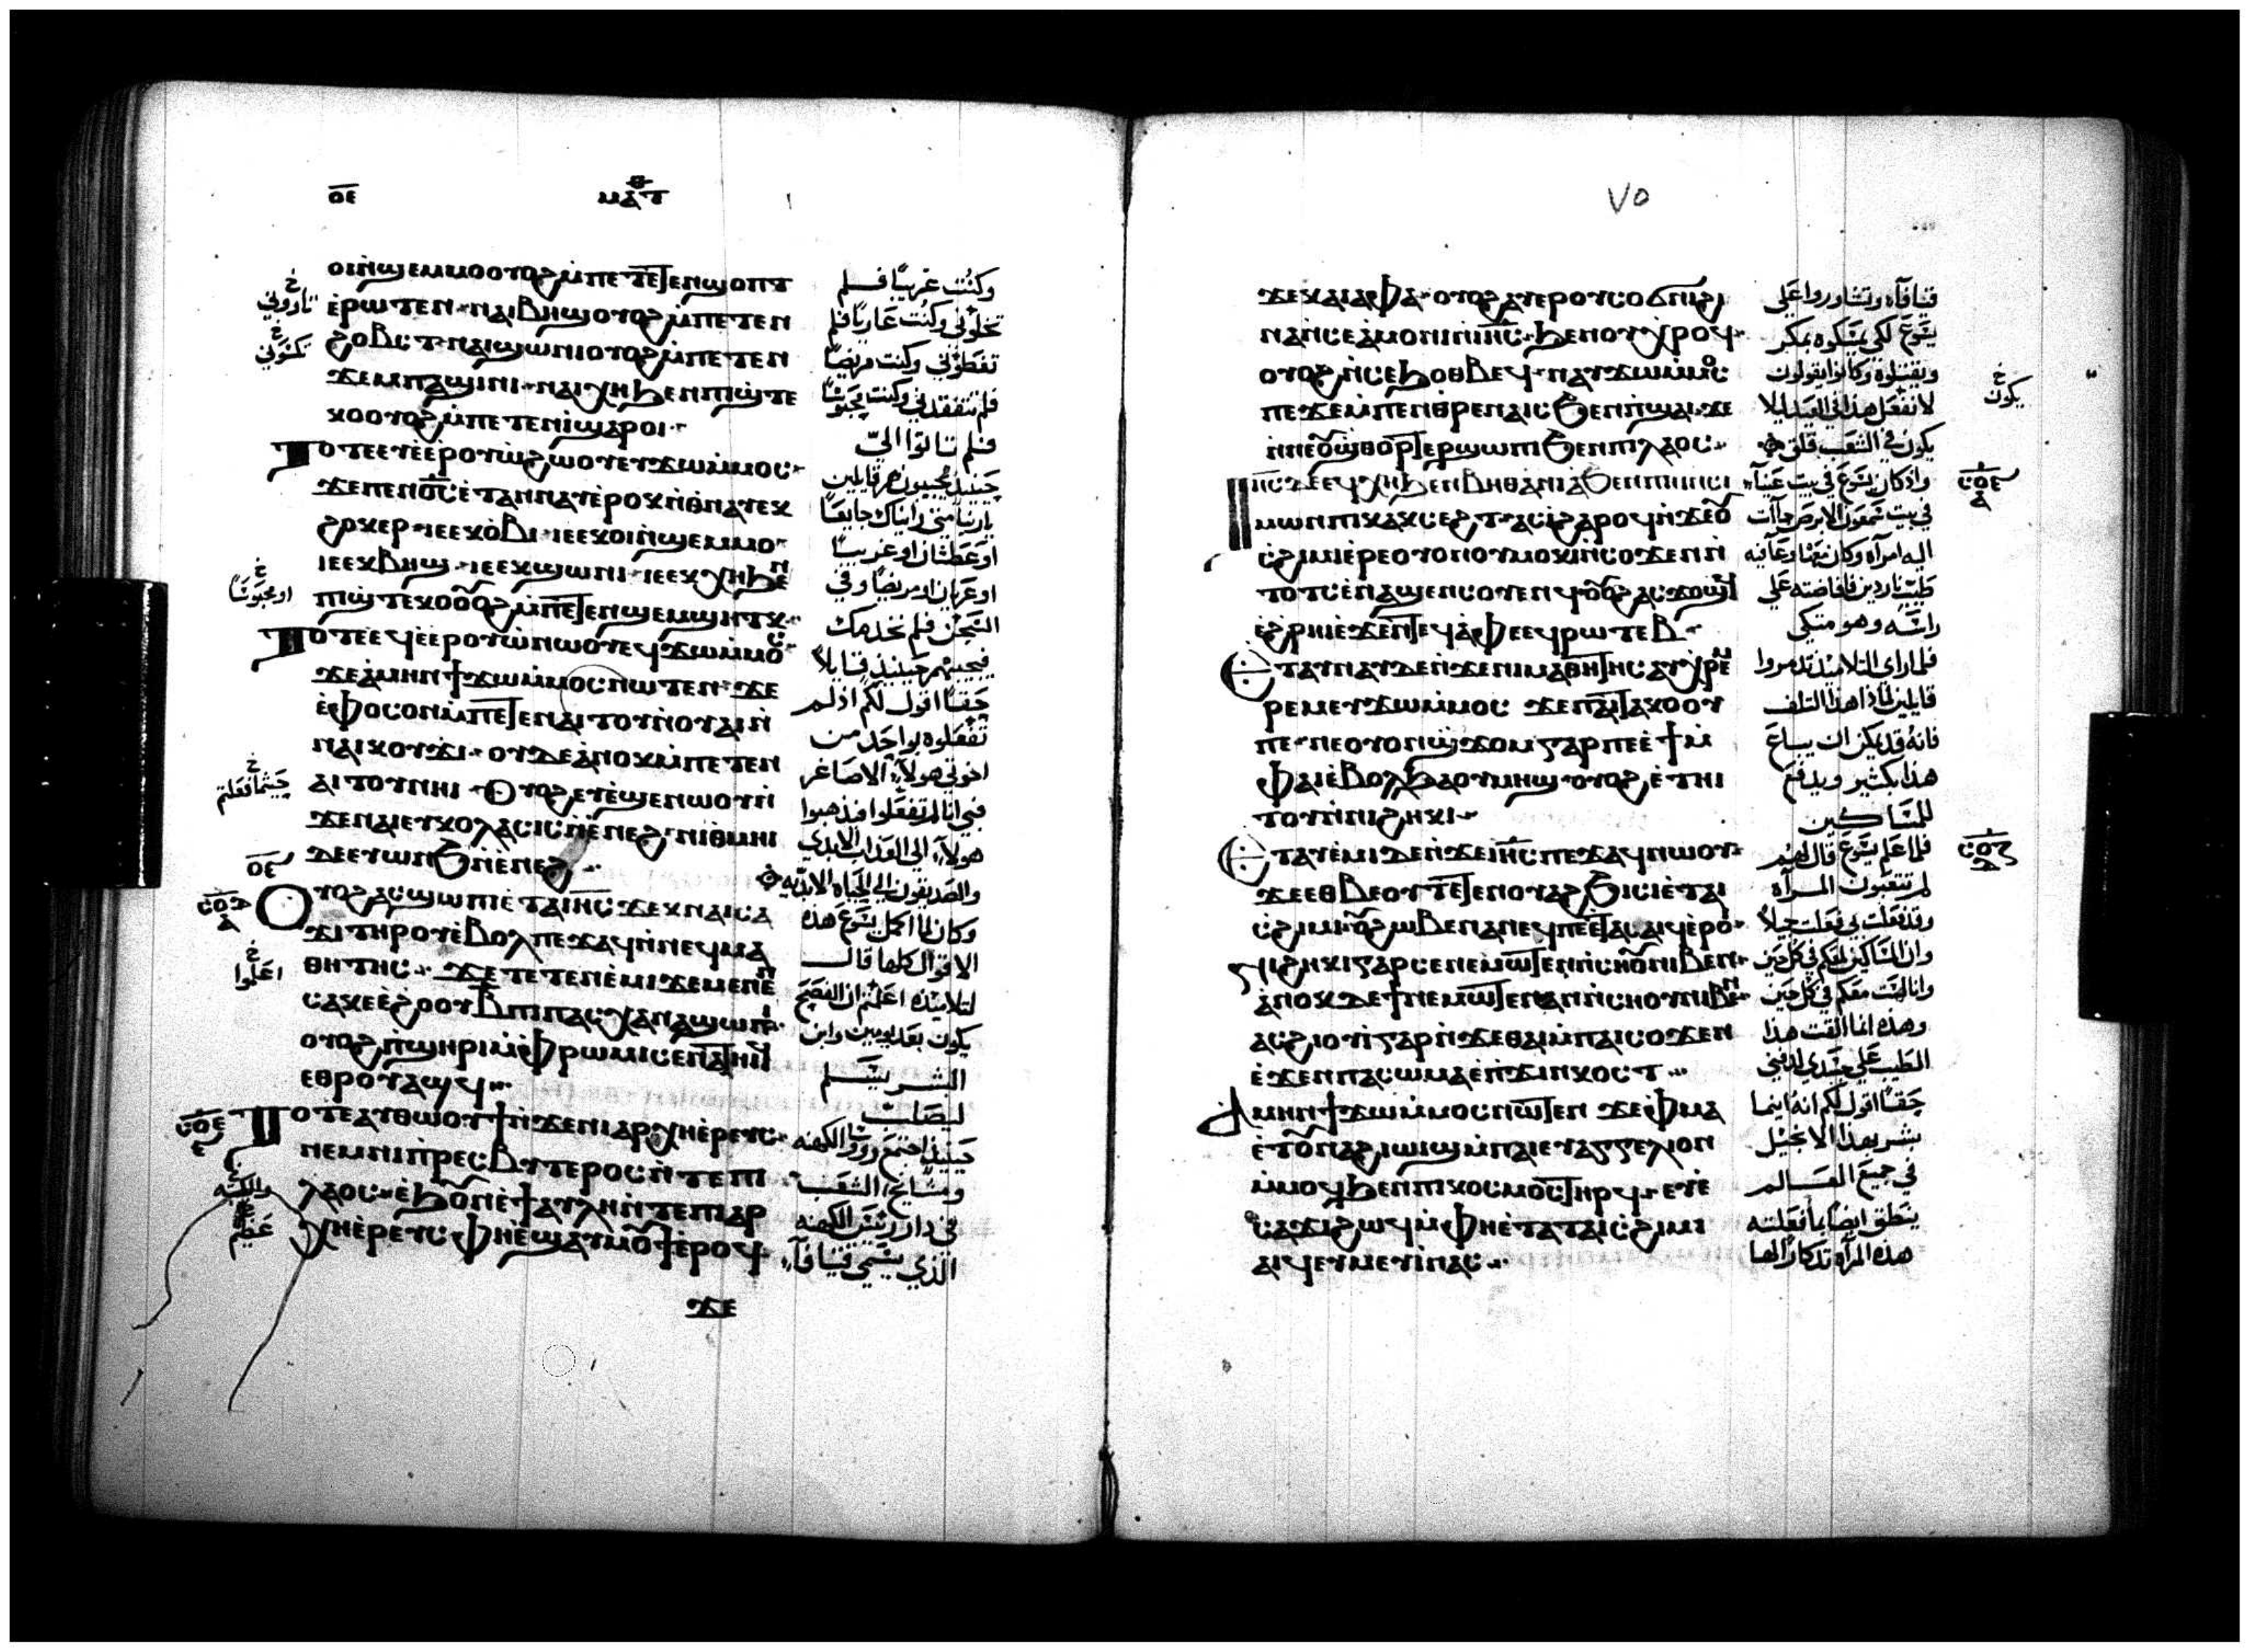 ⲟⲉ
ⲙⲁⲧⲑ
ⲟⲓⲛ̀ϣⲉⲙⲙⲟ ⲟⲩⲟϩ ⲙ̀ⲡⲉⲧⲉⲛϣⲟⲡⲧ
ⲉ̀ⲣⲱⲧⲉⲛ ⲛⲁⲓⲃⲏϣ ⲟⲩⲟϩ ⲙ̀ⲡⲉⲧⲉⲛ
ϩⲟⲃⲥⲧ ⲛⲁⲓϣⲱⲛⲓ ⲟⲩⲟϩ ⲙ̀ⲡⲉⲧⲉⲛ
ϫⲉⲙⲡⲁϣⲓⲛⲓ ⲛⲁⲓⲭⲏ ϧⲉⲛ ⲡϣ̀ⲧⲉ
ⲕⲟ ⲟⲩⲟϩ ⲙ̀ⲡⲉⲧⲉⲛⲓ̀ ϣⲁⲣⲟⲓ
ⲧⲟⲧⲉ ⲉⲩⲉ̀ⲉⲣⲟⲩⲱ̀ ϩⲱⲟⲩ ⲉⲩϫⲱⲙ̀ⲙⲟⲥ
ϫⲉ ⲡⲉⲛⲟ̅ⲥ̅ ⲉ̀ⲧⲁⲛⲛⲁⲩ ⲉ̀ⲣⲟⲕ ⲛ̀ⲑⲛⲁⲩ ⲉⲕ
ϩⲟⲕⲉⲣ ⲓⲉ ⲉⲕⲟ̀ⲃⲓ ⲓⲉ ⲉⲕⲟⲓⲛ̀ϣⲉⲙⲙⲟ
ⲓⲉ ⲉⲕⲃⲏϣ ⲓⲉ ⲉⲕϣⲱⲛⲓ ⲓⲉ ⲉⲕⲭⲏ ϧⲉⲛ
ⲡϣ̀ⲧⲉⲕⲟ ⲟⲩⲟϩ ⲙ̀ⲡⲉⲛϣⲉⲙϣⲏⲧⲕ
ⲧⲟⲧⲉ ⲉϥⲉ̀ⲉⲣⲟⲩⲱ̀ ⲛⲱⲟⲩ ⲉϥϫⲱⲙ̀ⲙⲟⲥ
ϫⲉ ⲁ̀ⲙⲏⲛ ϯϫⲱⲙ̀ⲙⲟⲥ ⲛⲱⲧⲉⲛ ϫⲉ
ⲉ̀ⲫⲟⲥⲟⲛ ⲙ̀ⲡⲉⲧⲉⲛⲁⲓⲧⲟⲩ ⲛ̀ⲟⲩⲁⲓ ⲛ̀
ⲛⲁⲓⲕⲟⲩϫⲓ ⲟⲩⲇⲉ ⲁ̀ⲛⲟⲕ ⲙ̀ⲡⲉⲧⲉⲛ
ⲁⲓⲧⲟⲩ ⲛⲏⲓ ⲟⲩⲟϩ ⲉⲩⲉ̀ϣⲉⲛⲱⲟⲩ ⲛ̀
ϫⲉⲛⲁⲓ ⲉⲩⲕⲟⲗⲁⲥⲓⲥ ⲛ̀ⲉ̀ⲛⲉϩ ⲛⲓⲑⲙⲏⲓ
ⲇⲉ ⲉⲩⲱⲛϧ ⲛ̀ⲉ̀ⲛⲉϩ
ⲟⲩⲟϩ ⲁⲥϣⲱⲡⲓ ⲉ̀ⲧⲁ ⲓⲏ̅ⲥ̅ ϫⲉⲕ ⲛⲁⲓⲥⲁ
ϫⲓ ⲧⲏⲣⲟⲩ ⲉ̀ⲃⲟⲗ ⲡⲉϫⲁϥ ⲛ̀ⲛⲉϥⲙⲁ
ⲑⲏⲧⲏⲥ ϫⲉ ⲧⲉⲧⲉⲛⲉ̀ⲙⲓ ϫⲉ ⲙⲉⲛⲉⲛ
ⲥⲁ ⲕⲉⲉ̀ϩⲟⲟⲩ ⲃ̅ ⲡⲓⲡⲁⲥⲭⲁ ⲛⲁϣⲱⲡⲓ
ⲟⲩⲟϩ ⲡ̀ϣⲏⲣⲓ ⲙ̀ⲫⲣⲱⲙⲓ ⲥⲉⲛⲁⲧⲏⲓϥ
ⲉⲑⲣⲟⲩⲁϣϥ
ⲧⲟⲧⲉ ⲁⲩⲑⲱⲟⲩϯ ⲛ̀ϫⲉⲛⲓⲁⲣⲭⲏⲉ̀ⲣⲉⲩⲥ
ⲛⲉⲙ ⲛⲓⲡⲣⲉⲥⲃⲩⲧⲉⲣⲟⲥ ⲛ̀ⲧⲉ ⲡⲓ
ⲗⲁⲟⲥ ⲉ̀ϧⲟⲩⲛ ⲉ̀ϯⲁⲩⲗⲏ ⲛ̀ⲧⲉ ⲡⲓⲁⲣ
ⲭⲏⲉ̀ⲣⲉⲩⲥ ⲫⲏⲉ̀ϣⲁⲩⲙⲟⲩϯ ⲉ̀ⲣⲟϥ
ϫⲉ
وكنت غريبًا فلم
تخلوني وكنت عاريًا فلم
تغطوني وكنت مريضًا
فلم تتفقدني وكنت محبوسًا
فلم تاتوا اليّ
حينيذ يجيبون هم قايلين
يا ربنا متى رايناك جايعًا
او عطشان او غريبًا
او عريان او مريضًا وفي
السجن فلم نخدمك
فيجيبهم حينيذ قايلاً
حقًا اقول لكم اذ لم
تفعلوه بواحد من
اخوتي هولاء الاصاغر
فبي انا لم تفعلوا فيذهبوا
هولاء الى العذاب الابدي
والصديقون الى الحياه الابديه
وكان لما اكمل يسوع هذه
الاقوال كلها قال
لتلاميذه اعلمتم ان الفصح
يكون بعد يومين وابن
البشر يسلم
ليصلب
حينيذ اجتمع روسا الكهنه
ومشايخ الشعب
في دار رييس الكهنه
الذي يسمى قيافاء
٧٥
ϫⲉ ⲕⲁⲓⲁⲫⲁ ⲟⲩⲟϩ ⲁⲩⲉⲣⲟⲩⲥⲟϭⲛⲓ ϩⲓ
ⲛⲁ ⲛ̀ⲥⲉⲁ̀ⲙⲟⲛⲓ ⲛ̀ⲓⲏ̅ⲥ̅ ϧⲉⲛ ⲟⲩⲭⲣⲟϥ
ⲟⲩⲟϩ ⲛ̀ⲥⲉϧⲟⲑⲃⲉϥ ⲛⲁⲩϫⲱⲙ̀ⲙⲟⲥ
ⲡⲉ ϫⲉ ⲙ̀ⲡⲉⲛⲑⲣⲉⲛⲁⲓⲥ ϧⲉⲛ ⲡ̀ϣⲁⲓ ϫⲉ
ⲛ̀ⲛⲉⲟⲩϣ̀ⲑⲟⲣⲧⲉⲣ ϣⲱⲡⲓ ϧⲉⲛ ⲡⲓⲗⲁⲟⲥ
ⲓⲏ̅ⲥ̅ ⲇⲉ ⲉϥⲭⲏ ϧⲉⲛ ⲃⲏⲑⲁⲛⲓⲁ ϧⲉⲛ ⲡⲏⲓ ⲛ̀ⲥⲓ
ⲙⲱⲛ ⲡⲓⲕⲁⲕⲥⲉϩⲧ ⲁⲥⲓ̀ ϩⲁⲣⲟϥ ⲛ̀ϫⲉⲟⲩ
ⲥ̀ϩⲓⲙⲓ ⲉ̀ⲣⲉ ⲟⲩⲟⲛ ⲟⲩⲙⲟⲕⲓ ⲛ̀ⲥⲟϫⲉⲛ ⲛ̀
ⲧⲟⲧⲥ ⲉ̀ⲛⲁϣⲉⲛⲥⲟⲩⲉⲛϥ ⲟⲩⲟϩ ⲁⲥϫⲟϣϥ
ⲉ̀ϩⲣⲏⲓ ⲉ̀ϫⲉⲛ ⲧⲉϥⲁ̀ⲫⲉ ⲉϥⲣⲱⲧⲉⲃ
ⲉⲧⲁⲩⲛⲁⲩ ⲇⲉ ⲛ̀ϫⲉⲛⲓⲙⲁⲑⲏⲧⲏⲥ ⲁⲩⲭⲣⲉⲙ
ⲣⲉⲙ ⲉⲩϫⲱⲙ̀ⲙⲟⲥ ϫⲉ ⲡⲁⲓⲧⲁⲕⲟ ⲟⲩ
ⲡⲉ ⲛⲉ ⲟⲩⲟⲛϣ̀ϫⲟⲙ ⲅⲁⲣ ⲡⲉ ⲉ̀ϯ ⲙ̀
ⲫⲁⲓ ⲉ̀ⲃⲟⲗ ϧⲁ ⲟⲩⲙⲏϣ ⲟⲩⲟϩ ⲉ̀ⲧⲏⲓ
ⲧⲟⲩ ⲛ̀ⲛⲓϩⲏⲕⲓ
ⲉⲧⲁϥⲉ̀ⲙⲓ ⲇⲉ ⲛ̀ϫⲉⲓⲏ̅ⲥ̅ ⲡⲉϫⲁϥ ⲛⲱⲟⲩ
ϫⲉ ⲉⲑⲃⲉⲟⲩ ⲧⲉⲧⲉⲛⲟⲩⲁϩϧⲓⲥⲓ ⲉ̀ⲧⲁⲓ
ⲥ̀ϩⲓⲙⲓ ⲟⲩϩⲱⲃ ⲉⲛⲁⲛⲉϥ ⲡⲉ ⲉⲧⲁⲥⲁⲓϥ ⲉ̀ⲣⲟⲓ
ⲛⲓϩⲏⲕⲓ ⲅⲁⲣ ⲥⲉⲛⲉⲙⲱⲧⲉⲛ ⲛ̀ⲥⲏⲟⲩ ⲛⲓⲃⲉⲛ
ⲁ̀ⲛⲟⲕ ⲇⲉ ϯⲛⲉⲙⲱⲧⲉⲛ ⲁⲛ ⲛ̀ⲥⲏⲟⲩ ⲛⲓⲃⲉⲛ
ⲁⲥϩⲓⲟⲩⲓ̀ ⲅⲁⲣ ⲛ̀ϫⲉⲑⲁⲓ ⲙ̀ⲡⲁⲓⲥⲟϫⲉⲛ
ⲉ̀ϫⲉⲛ ⲡⲁⲥⲱⲙⲁ ⲉ̀ⲡ̀ϫⲓⲛⲕⲟⲥⲧ
ⲁⲙⲏⲛ ϯϫⲱⲙ̀ⲙⲟⲥ ⲛⲱⲧⲉⲛ ϫⲉ ⲫⲙⲁ
ⲉ̀ⲧⲟⲩⲛⲁϩⲓⲱⲓϣ ⲙ̀ⲡⲁⲓⲉⲩⲁⲅⲅⲉⲗⲓⲟⲛ
ⲙ̀ⲙⲟϥ ϧⲉⲛ ⲡⲓⲕⲟⲥⲙⲟⲥ ⲧⲏⲣϥ ⲉⲩⲉ̀
ⲥⲁϫⲓ ϩⲱϥ ⲙ̀ⲫⲏⲉ̀ⲧⲁ ⲧⲁⲓⲥ̀ϩⲓⲙⲓ
ⲁⲓϥ ⲉⲩⲙⲉⲩⲓ̀ ⲛⲁⲥ
قيافاء وتشاوروا على
يسوع لكي يمسكوه بمكر
ويقتلوه وكانوا يقولون
لا نفعل هذا في العيد ليلا
يكون في الشعب قلق
واذ كان يسوع في بيت عنياء
في بيت سمعون الابرص جاأت
اليه امراه وكان معها وعاء فيه
طيب ناردين فافاضته على
راسه وهو متكي
فلما راى التلاميذ تذمروا
قايلين لماذا هذا التلف
فانه قد يمكن ان يباع
هذا بكثير ويدفع
للمساكين
فلما علم يسوع قال لهم
لم تتعبون المراه
وقد فعلت بي فعلت جميلاً
وان المساكين معكم في كل حين
وانا لست معكم في كل حين
وهذه انما القت هذا
الطيب على جسدي لدفني
حقًا اقول لكم انه اينما
بشر بهذا الانجيل
في جميع العالم
ينطق ايضًا بما فعلته
هذه المراه تذكارًا لها